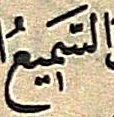 السَّمِيعُ